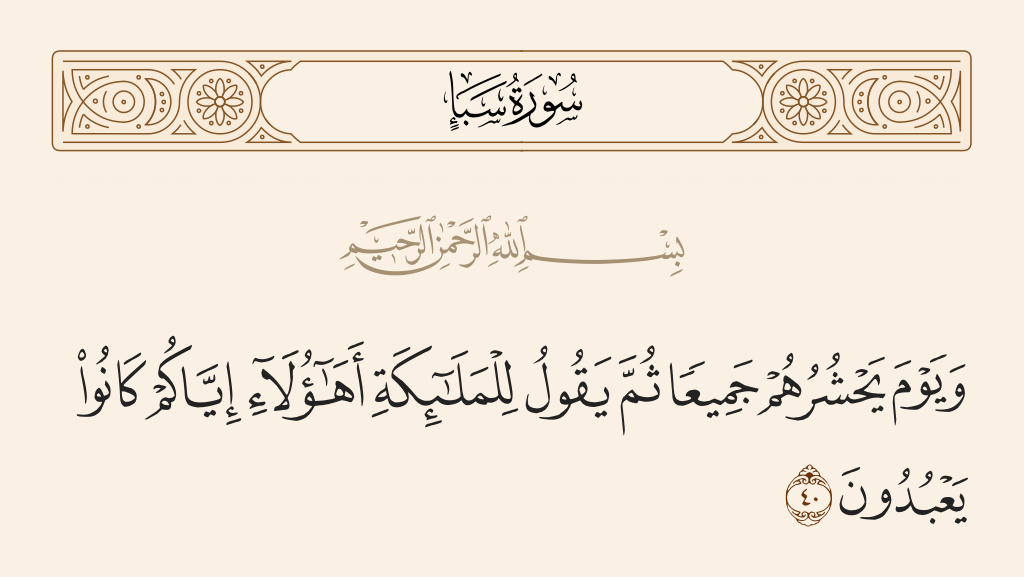 سُورَةُ سَبَإٍ
بِسْمِ ٱللَّهِ ٱلرَّحْمَٰنِ ٱلرَّحِيمِ
وَيَوْمَ يَحْشُرُهُمْ جَمِيعًا ثُمَّ يَقُولُ لِلْمَلَٰٓئِكَةِ أَهَٰٓؤُلَآءِ إِيَّاكُمْ كَانُوا۟
يَعْبُدُونَ ٤٠